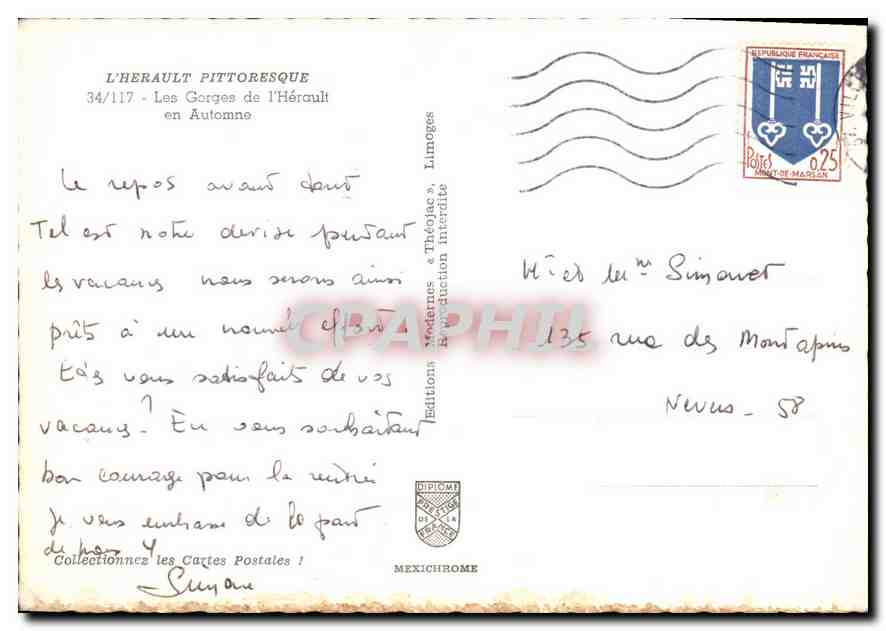 L'HERAULT PITTORESQUE
34/117 - Les Gorges de l'Hérault
en Automne
Le repos avant tout
Tel est notre devise pendant
les vacances nous serons ainsi
prêts à un nouvel effort.
Etes vous satisfaits de vos
vacances ? En vous souhaitant
bon courage pour la rentrée
Je vous embrasse de la part
de nous 4
Simone
Collectionnez les Cartes Postales !
Editions Modernes « Théojac », Limoges
Reproduction interdite
DIPLOME
PRESTIGE
DE LA
FRANCE
MEXICHROME
REPUBLIQUE FRANÇAISE
POSTES 0,25
MONT-DE-MARSAN
Mr et Mme Simonet
135 rue des Montapins
Nevers - 58
CPAPHIL